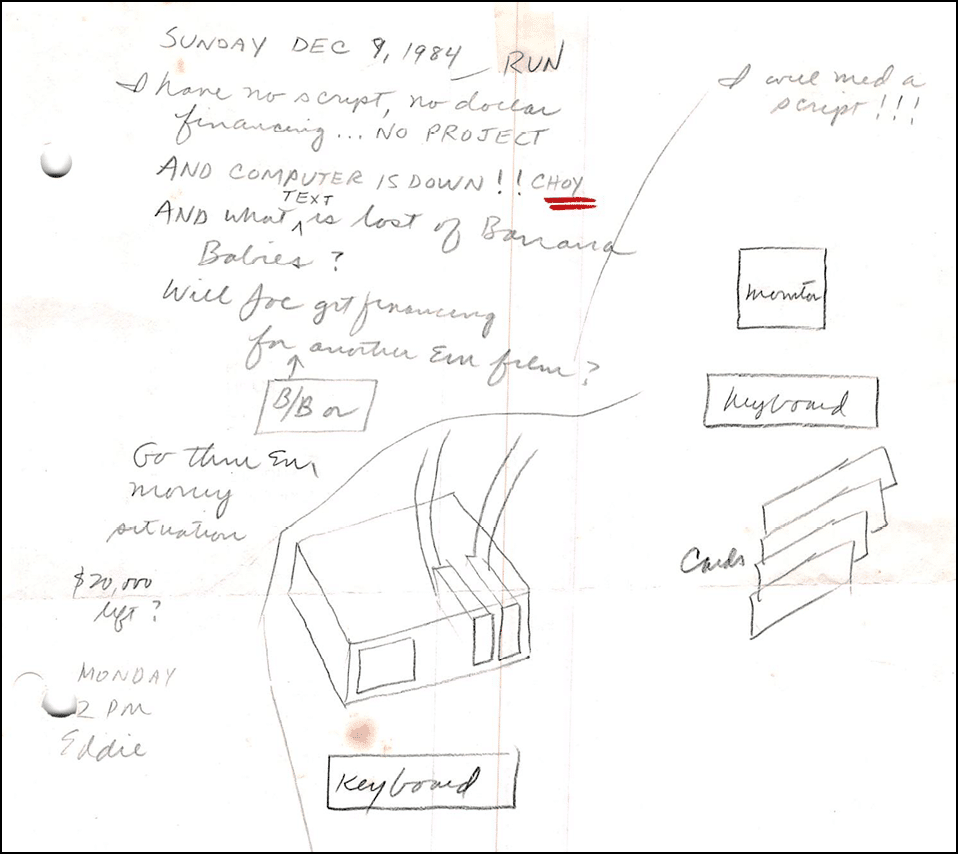 SUNDAY DEC 9, 1984 _ RUN
I have no script, no dollar
financing... NO PROJECT
AND COMPUTER IS DOWN!! CHOY
TEXT
AND what is lost of Banana
Babies?
Will Joe get financing
for another Em film?
B/B or
I will need a
script!!!
monitor
Keyboard
Cards
Go thru Em
money
situation
$20,000
left?
MONDAY
2 PM
Eddie
Keyboard